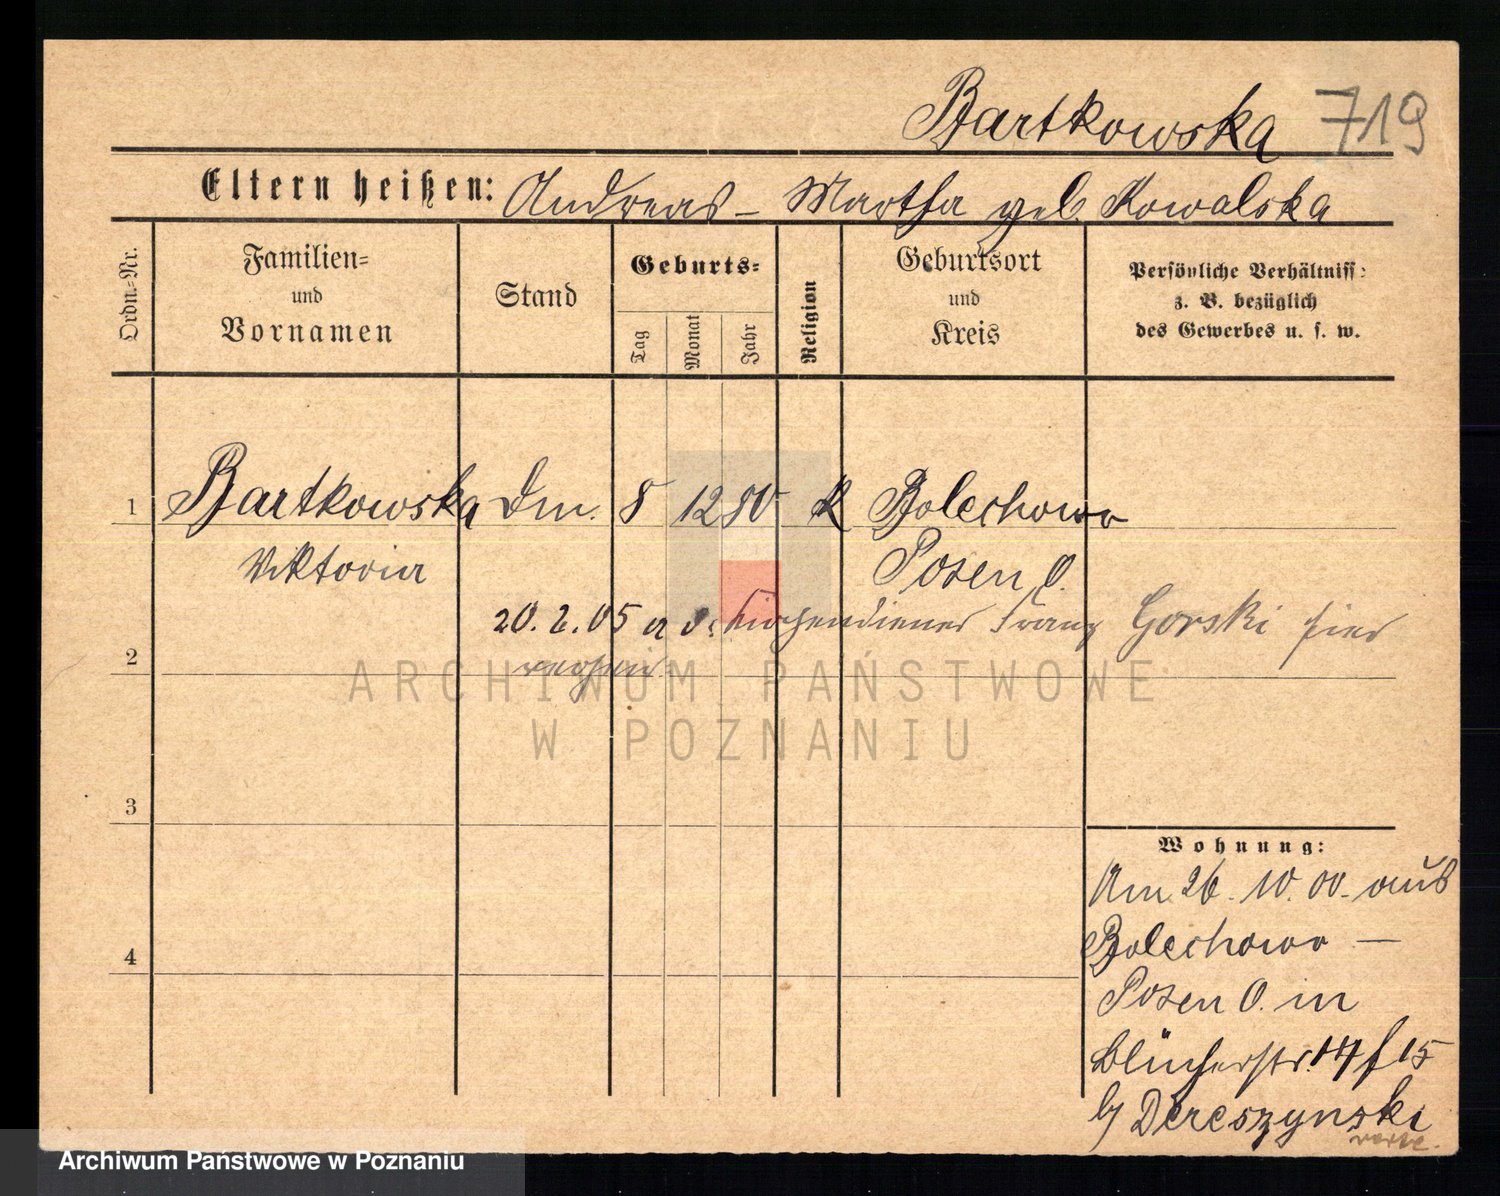 Bartkowska 719
Eltern heißen: Andreas – Martha geb. Kowalska
Ordn.-Nr.
Familien-
und
Vornamen
Stand
Geburts-
Tag
Monat
Jahr
Religion
Geburtsort
und
Kreis
Persönliche Verhältniss:
z. B. bezüglich
des Gewerbes u. s. w.
1 Bartkowska Dm. 8 12 80 K Bolechowo
Viktoria Posen O.
20. 2. 05 a d. Kirchendiener Franz Gorski hier
2
ARCHIWUM PAŃSTWOWE
W POZNANIU
3
Wohnung:
Am 26. 10. 00. aus
Bolechowo –
4
Posen O. in
Blücherstr. 14 f 15
b/ Dereszynski
Archiwum Państwowe w Poznaniu